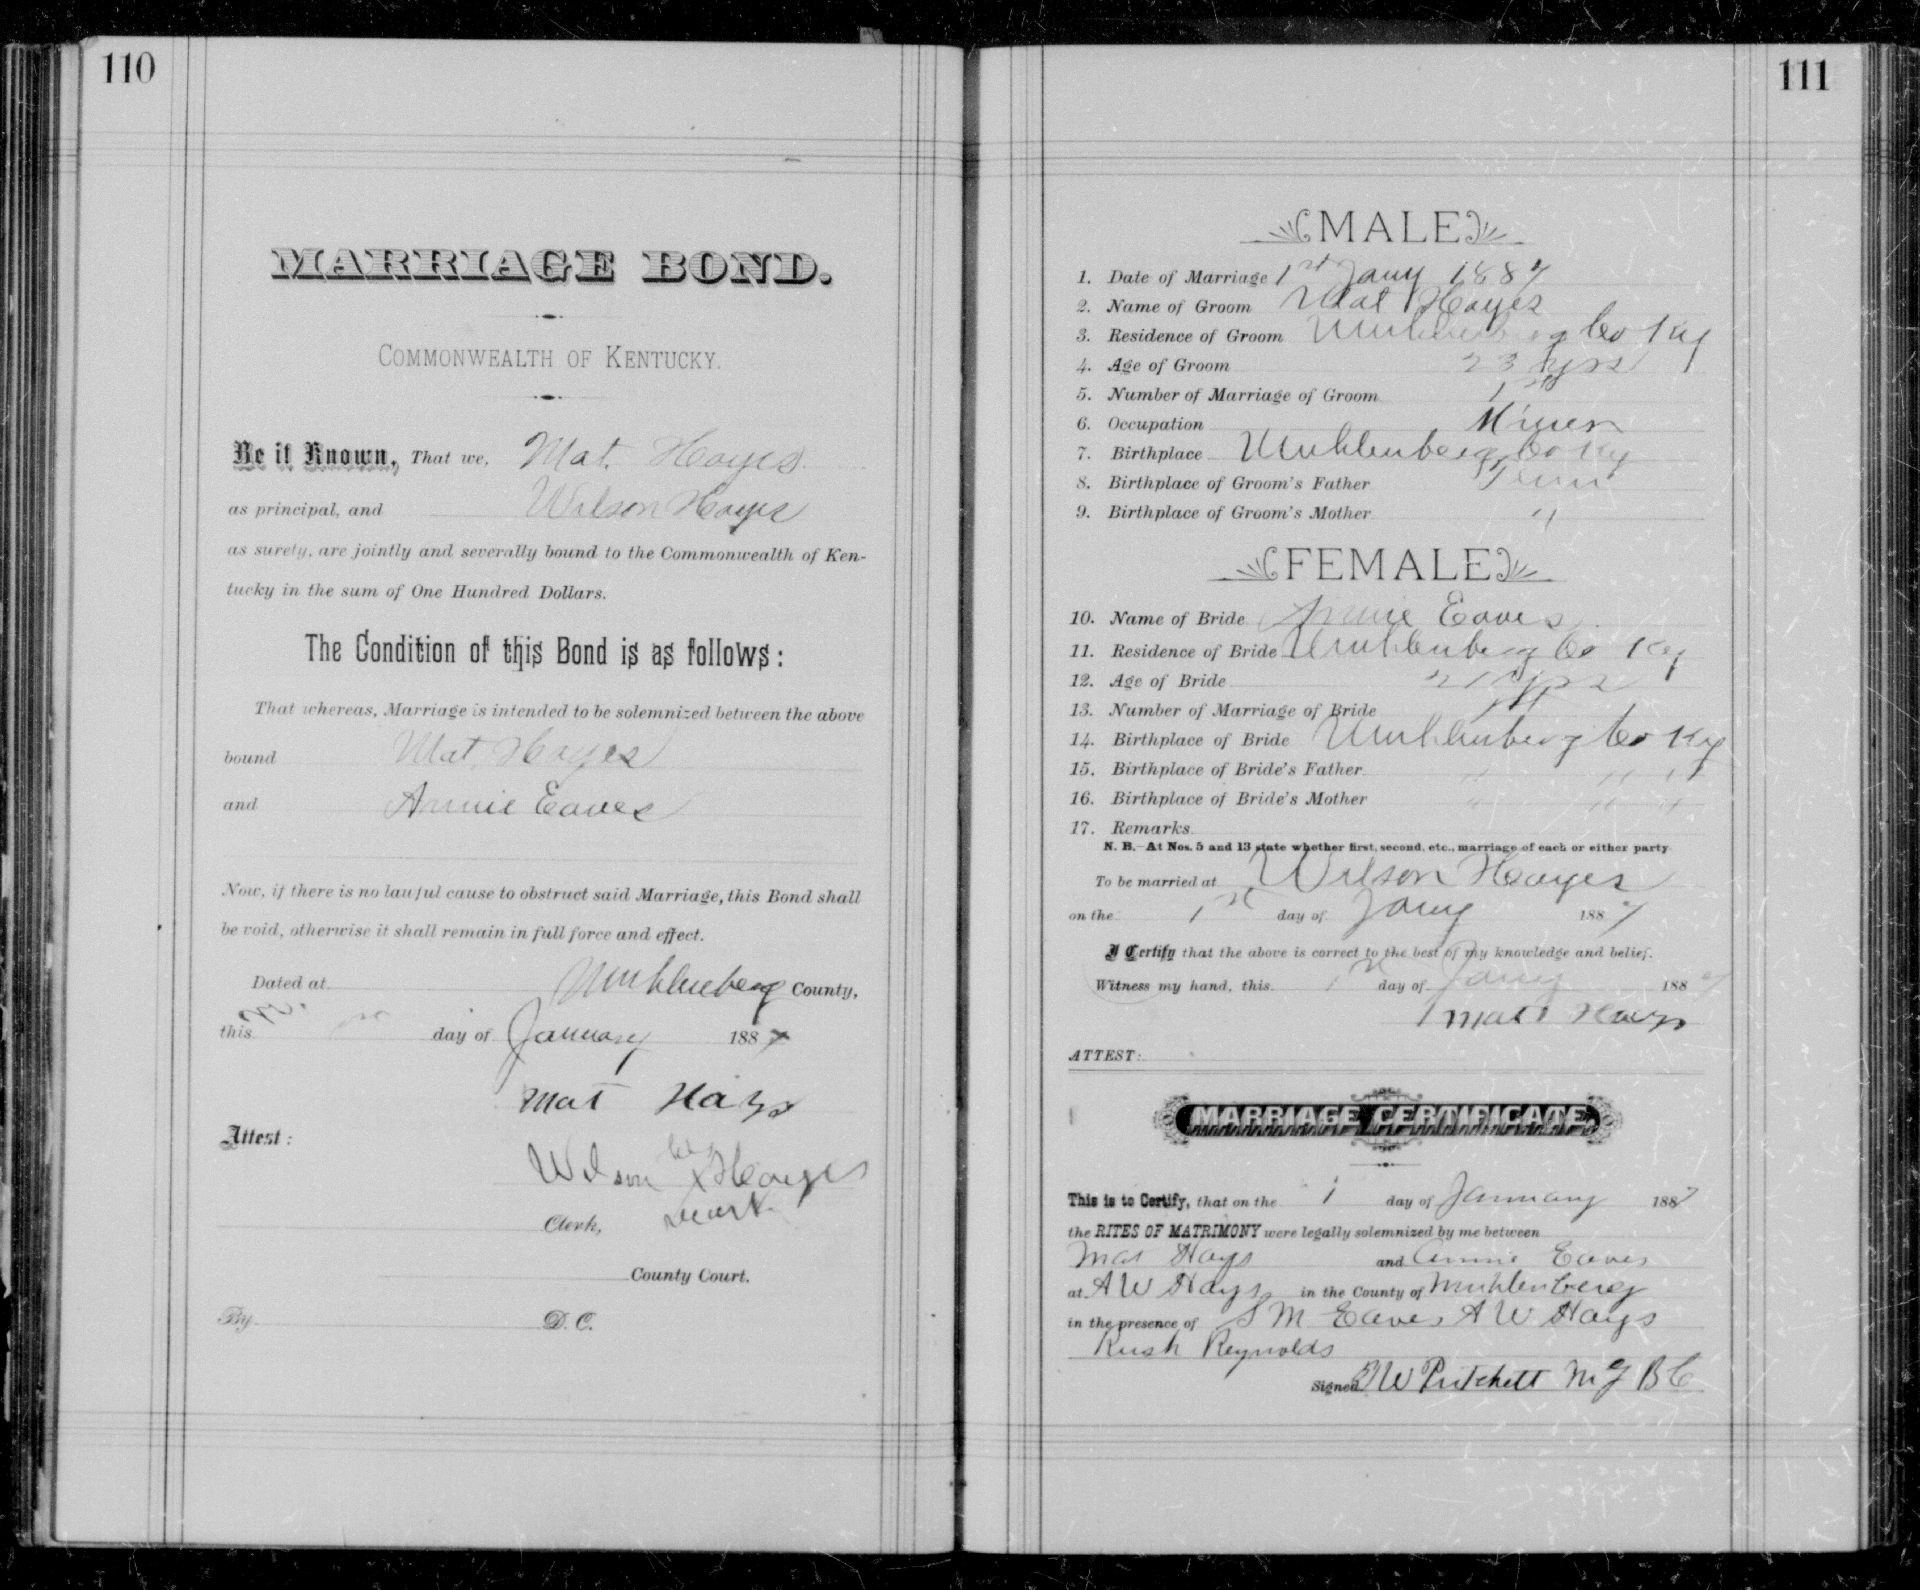 110
MARRIAGE BOND.
COMMONWEALTH OF KENTUCKY.
Be it Known, That we, Mat. Hayes
as principal, and Wilson Hayes
as surety, are jointly and severally bound to the Commonwealth of Ken-
tucky in the sum of One Hundred Dollars.
The Condition of this Bond is as follows:
That whereas, Marriage is intended to be solemnized between the above
bound Mat. Hayes
and Annie Eaves
Now, if there is no lawful cause to obstruct said Marriage, this Bond shall
be void, otherwise it shall remain in full force and effect.
Dated at Muhlenberg County,
this day of January 1887
Mat Hays
Attest:
Wilson his x Hayes
mark
Clerk,
County Court.
By D. C.
111
MALE
1. Date of Marriage 1st Jany 1887
2. Name of Groom Mat Hayes
3. Residence of Groom Muhlenberg Co Ky
4. Age of Groom 23 yrs
5. Number of Marriage of Groom 1st
6. Occupation Miner
7. Birthplace Muhlenberg Co Ky
8. Birthplace of Groom's Father Tenn
9. Birthplace of Groom's Mother "
FEMALE
10. Name of Bride Annie Eaves
11. Residence of Bride Muhlenberg Co Ky
12. Age of Bride 21 yrs
13. Number of Marriage of Bride 1st
14. Birthplace of Bride Muhlenberg Co Ky
15. Birthplace of Bride's Father " " "
16. Birthplace of Bride's Mother " " "
17. Remarks
N. B.—At Nos. 5 and 13 state whether first, second, etc., marriage of each or either party
To be married at Wilson Hayes
on the 1st day of Jany 1887
I Certify that the above is correct to the best of my knowledge and belief.
Witness my hand, this 1st day of Jany 1887
Mat Hays
ATTEST:
MARRIAGE CERTIFICATE.
This is to Certify, that on the 1 day of January 1887
the RITES OF MATRIMONY were legally solemnized by me between
Mat Hays and Annie Eaves
at A W Hays in the County of Muhlenberg
in the presence of S M Eaves A W Hays
Rush Reynolds
Signed B W Pritchett M G B C